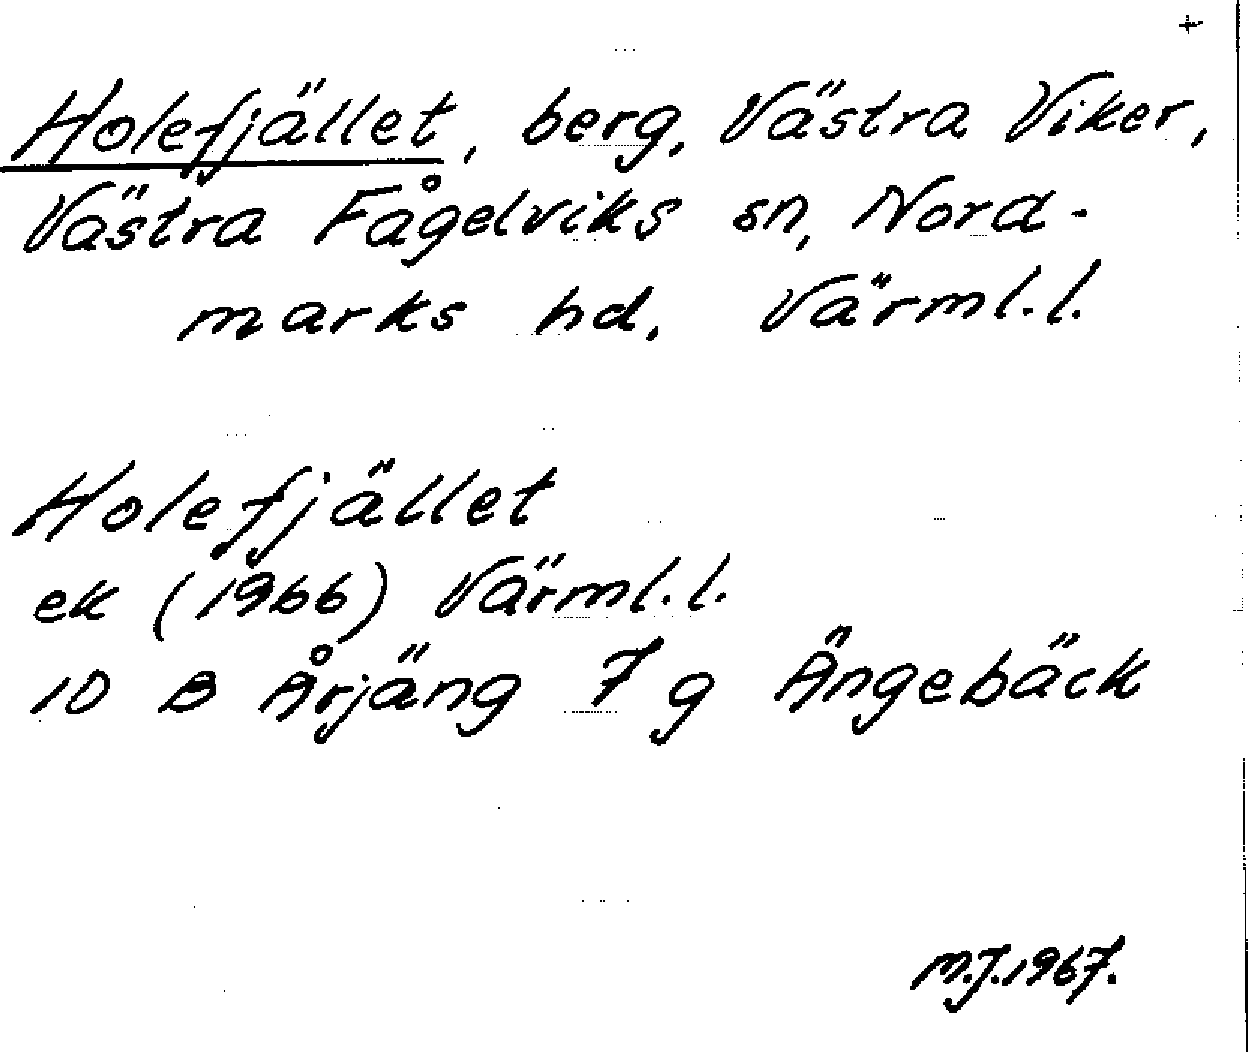 +
Holefjället, berg, Västra Viker,
Västra Fågelviks sn, Nord-
marks hd, Värml.l.
Holefjället
ek (1966) Värml.l.
10 B Årjäng 7 g Ängebäck
M.J.1967.